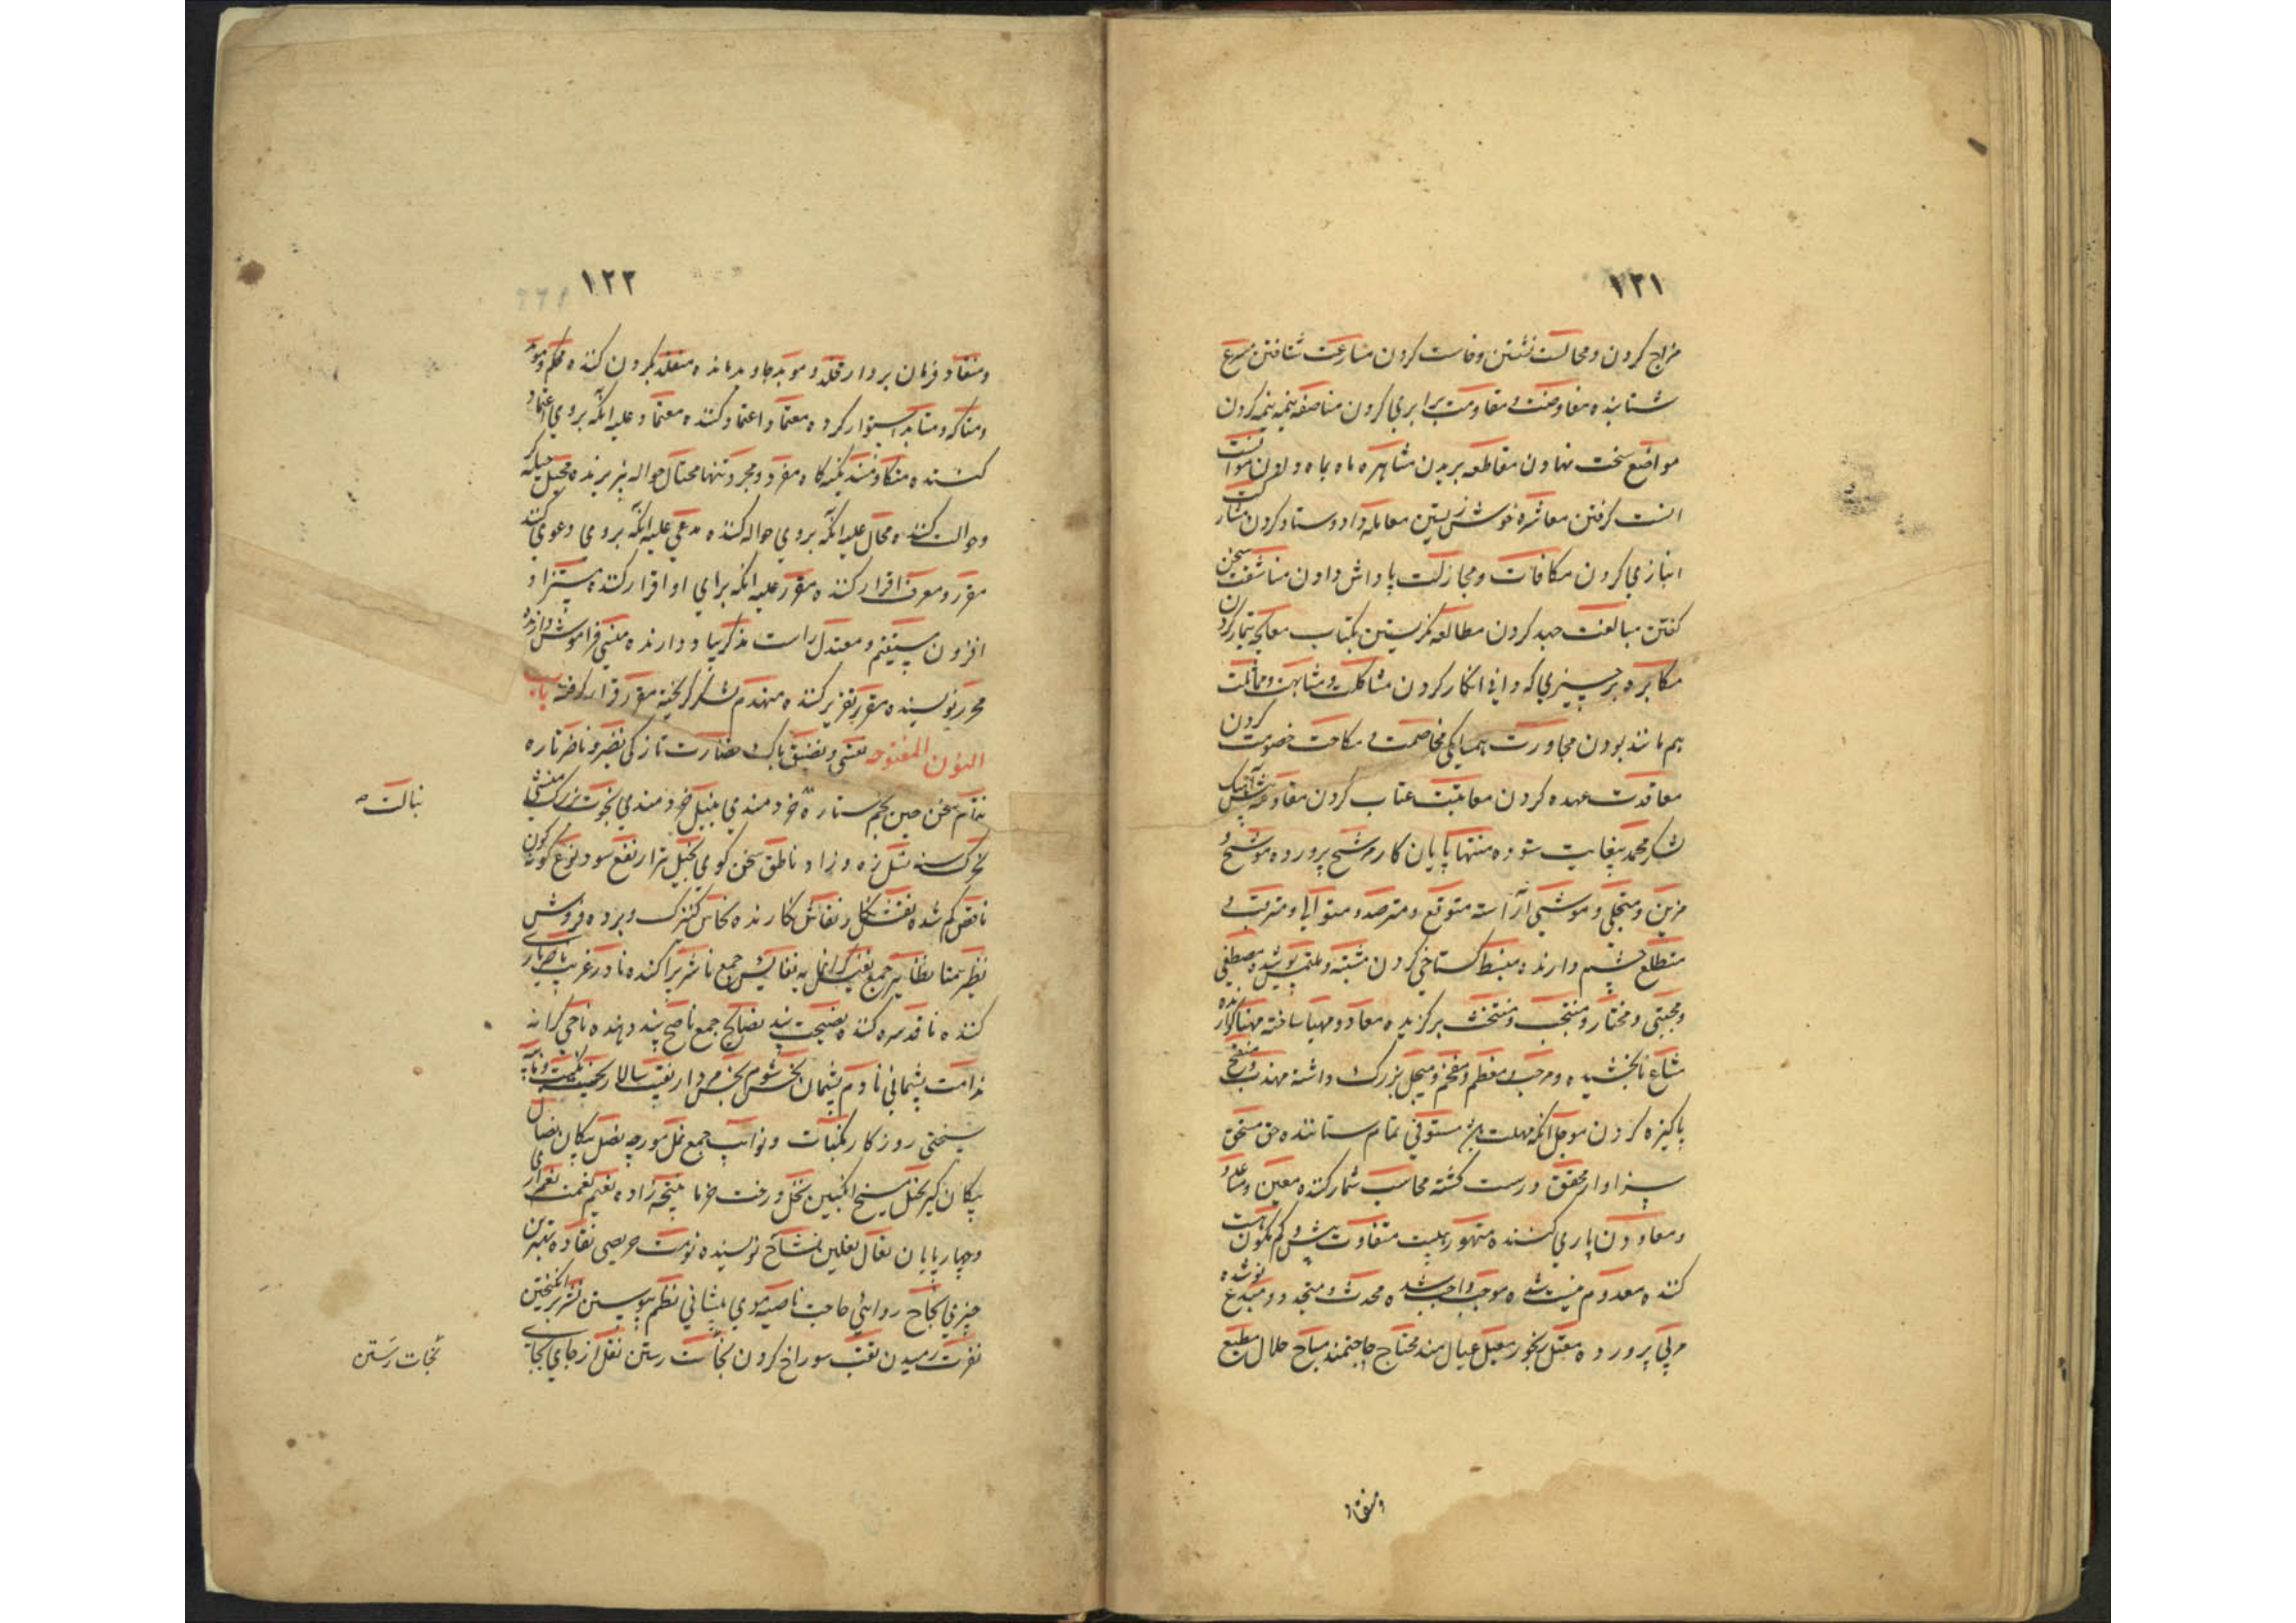 ١٢١
مزاح کردن و مجالست نشستن و خاست کردن مسارعت شتافتن مسرع
شتابنده معاوضت و مقاومت برابری کردن مناصفه نیمه نیمه کردن
مواضع سخت نهادن مقاطعه بریدن مشاهره ماه بماه دادن موانست
انست گرفتن معاشره خوش زیستن معامله داد و ستاد کردن مشارکت
انبازی کردن مکافات و مجازات پاداش دادن سخن
گفتن مبالغت جهد کردن مطالعه نگریستن بکتاب معالجه تیمار کردن
مکابره بر چیزی که دانی انکار کردن مشاکلت و مشابهت و مماثلت
هم مانند بودن مجاورت همسایکی مخاصمت و خصومت کردن
معاقدت عهده کردن معاتبت عتاب کردن
لشکر محمد بغایت ستوده منتها پایان کار مرشح پرورده موشح و
مزین و متحلی و موشی آراسته متوقع و مترصد و
متطلع چشم دارنده منبسط کستاخی کردن مشتبه و ملتبس پوشیده مصطفی
و مجتبی و مختار و منتجب و منتخب برگزیده معاد و مهیا ساخته مهنا گوارنده
مشاع نابخشیده و مرحب و معظم و مفخم و مبجل بزرگ داشته مهذب و منقح
پاکیزه کردن موجل انکه مهلت مستوفی تمام ستاننده حق مستحق
سزاوار محقق درست کشته محاسب شمار کننده معین و مساعد
و معاون یاری کننده متهور متفاوت بیش و کم مکون هست
کننده معدوم نیست شده موجب واجب شده محدث و متجدد و مبدع نو شده
مربی پرورده معتل رنجور معیل عیال مند محتاج حاجتمند مباح حلال مطیع
و منقاد
١٢٢
و منقاد فرمان بردار مخلد و موبد جاوید مانده متقلد بگردن کننده محکم و موکد
استوار کرده معتماد اعتماد کننده معتماد علیه انکه بروی اعتماد
کننده مفرد و مجرد تنها محتال حواله پذیرنده محیل حیله گر
و حوالت کننده محال علیه انکه بروی حواله کننده مدعی علیه انکه بروی دعوی کنند
مقر و معرف اقرار کننده مقر علیه انکه برای او اقرار کنند مستزاد
افزون مستقیم و معتدل راست مذکر بیاد دارنده منسی فراموش دارنده
محرر نویسنده مقرر تقریر کننده منهدم لشکر گریخته مقرر قرار گرفته باب
النون المفتوحه نقی و نضیف پاک نضارت تازگی نضیر و ناضر تازه
سخن چین نجم ستاره خردمندی نبیل خردمندی نخوت بزرگ منشی
نسل زه و زاد ناطق سخن گوی نفع سود نوع گونه
ناقص کم شده نقش نگار نقاش نگارنده نخاس کنیزک و برده فروش
نظیر همتا نظایر جمع نفیس گرانمایه نفایس جمع ناشر پراکنده نادر غریب ناصر یاری
کننده ناقد سره کننده نصیحت پند نصایح جمع ناصح پند دهنده ناحی کرانه
ندامت پشیمانی نادم پشیمان نحس شوم نجس مردار نقیب سالار نکبت و نایبه
سختی روزگار نکبات و نوایب جمع نمل مورچه نصل پیکان نصال
پیکان گیر نحل منج انگبین نخل درخت خرما نتیجه زاده نعیم نعمت نعم
و چهارپایان نعال نعلین نساخ نویسنده نهمت حریصی نقاده بهترین
چیزی نجاح روائی حاجت ناصیه موی پیشانی نظم پیوستن نثر برانگیختن
نفرت رمیدن نقب سوراخ کردن نجات رستن نقل از جای بجای
نبالت
نجات رستن